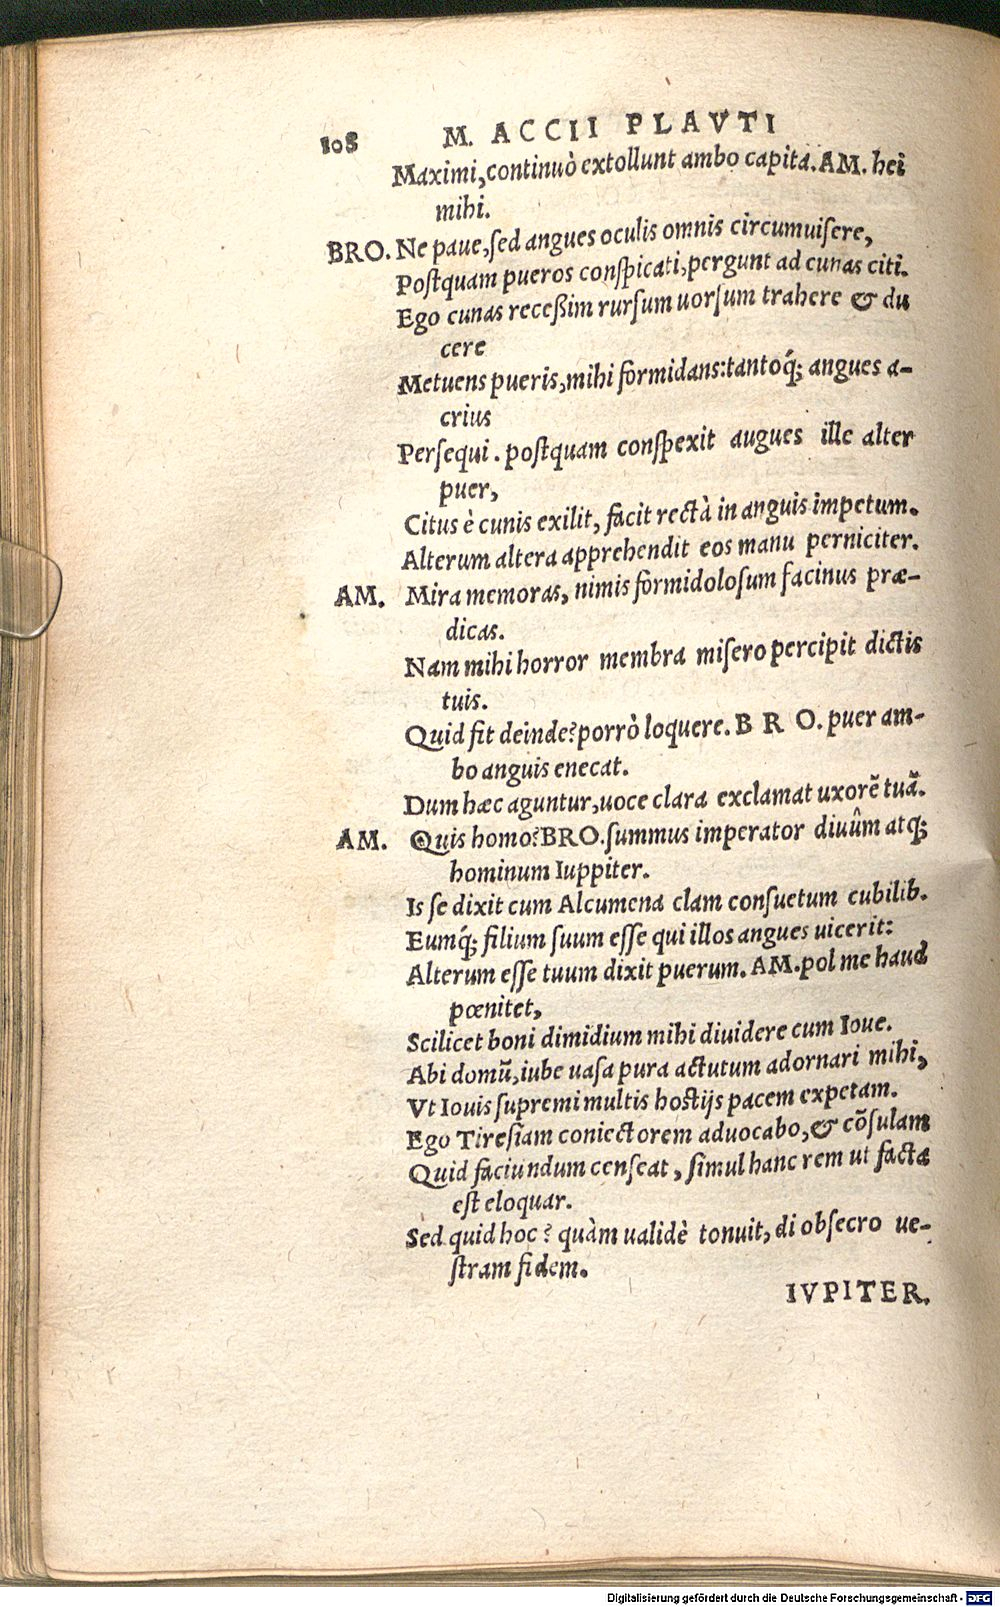 108 M. ACCII PLAVTI
Maximi, continuò extollunt ambo capita. AM. hei
mihi.
BRO. Ne paue, ſed angues oculis omnis circumuiſere,
Poſtquam pueros conſpicati, pergunt ad cunas citi.
Ego cunas receßim rurſum uorſum trahere & du
cere
Metuens pueris, mihi formidans: tantoq́; angues a-
crius
Perſequi. poſtquam conſpexit augues ille alter
puer,
Citus è cunis exilit, facit rectà in anguis impetum.
Alterum altera apprehendit eos manu perniciter.
AM. Mira memoras, nimis formidoloſum facinus præ-
dicas.
Nam mihi horror membra miſero percipit dictis
tuis.
Quid fit deinde? porrò loquere. BRO. puer am-
bo anguis enecat.
Dum hæc aguntur, uoce clara exclamat uxorẽ tuã.
AM. Quis homo? BRO. ſummus imperator diuûm atq;
hominum Iuppiter.
Is ſe dixit cum Alcumena clam conſuetum cubilib.
Eumq́; filium ſuum eſſe qui illos angues uicerit:
Alterum eſſe tuum dixit puerum. AM. pol me haud
pœnitet,
Scilicet boni dimidium mihi diuidere cum Ioue.
Abi domũ, iube uaſa pura actutum adornari mihi,
Vt Iouis ſupremi multis hoſtijs pacem expetam.
Ego Tireſiam coniectorem aduocabo, & cõſulam
Quid faciundum cenſeat, ſimul hanc rem ut facta
eſt eloquar.
Sed quid hoc? quàm ualidè tonuit, di obſecro ue-
ſtram fidem.
IVPITER.
Digitalisierung gefördert durch die Deutsche Forschungsgemeinschaft - DFG